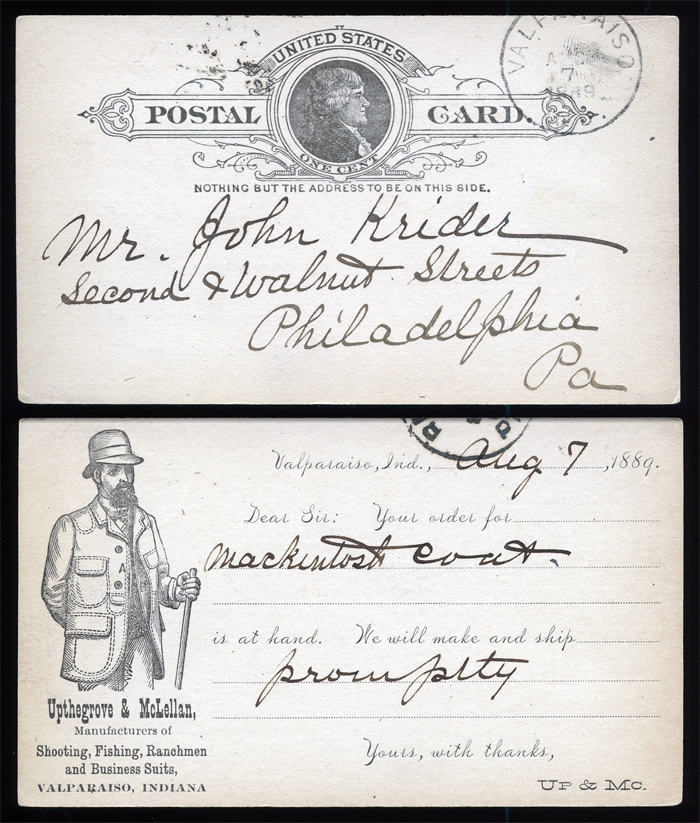 UNITED STATES
POSTAL CARD.
ONE CENT
NOTHING BUT THE ADDRESS TO BE ON THIS SIDE.
VALPARAISO
7
Mr. John Krider
Second & Walnut Streets
Philadelphia
Pa
Valparaiso, Ind., Aug 7, 1889.
Dear Sir: Your order for
Mackintosh coat
is at hand. We will make and ship
promplty
Yours, with thanks,
UP & MC.
A
Upthegrove & McLellan,
Manufacturers of
Shooting, Fishing, Ranchmen
and Business Suits,
VALPARAISO, INDIANA